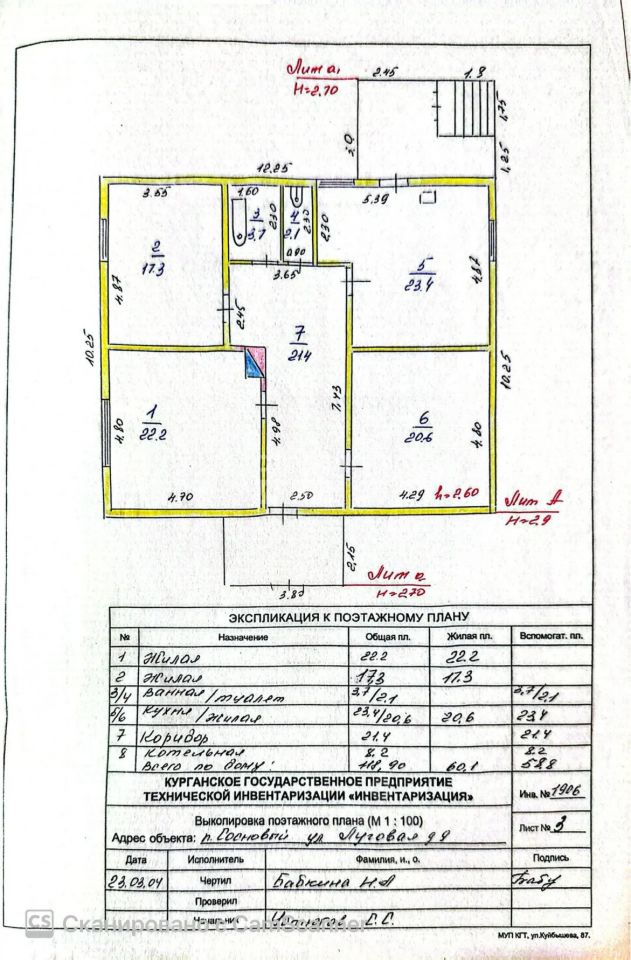 Лит а₁
Н=2.70
2.45
1.8
1,75
1,25
12.25
3.55
1.60
5.39
3
3.7
2.30
4
2.1
2.30
2.30
0.90
3.65
2
17.3
4.87
5
23.4
4.87
2.45
7
21.4
10.25
10.25
1
22.2
4.80
4.98
7.43
6
20.6
4.80
4.70
2.50
4.29
h=2.60
Лит А
Н=2.9
2,15
Лит а
Н=2.70
3.80
ЭКСПЛИКАЦИЯ К ПОЭТАЖНОМУ ПЛАНУ
№ Назначение Общая пл. Жилая пл. Вспомогат. пл.
1 Жилая 22.2 22.2
2 Жилая 17.3 17.3
3/4 Ванная/туалет 3,7/2.1 3,7/2.1
5/6 Кухня/жилая 23,4/20,6 20,6 23.4
7 Коридор 21.4 21.4
8 Котельная 8.2 8.2
Всего по дому: 118,90 60,1 58.8
КУРГАНСКОЕ ГОСУДАРСТВЕННОЕ ПРЕДПРИЯТИЕ
ТЕХНИЧЕСКОЙ ИНВЕНТАРИЗАЦИИ «ИНВЕНТАРИЗАЦИЯ»
Инв. № 1906
Выкопировка поэтажного плана (М 1 : 100)
Адрес объекта: п. Сосновый ул Луговая д 9
Лист № 3
Дата Исполнитель Фамилия, и., о. Подпись
23.03.04 Чертил Бабкина Н.А
Проверил
Начальник С.С.
CS Сканировано с CamScanner
МУП КГТ, ул.Куйбышева, 87.